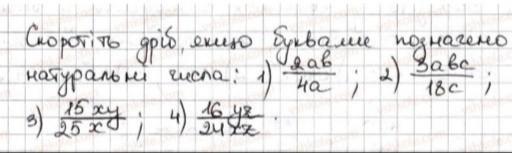 Скоротіть дріб, якщо буквами позначено
натуральні числа: 1) 2ab/4a ; 2) 3abc/18c ;
3) 15xy/25x ; 4) 16yz/24xz .